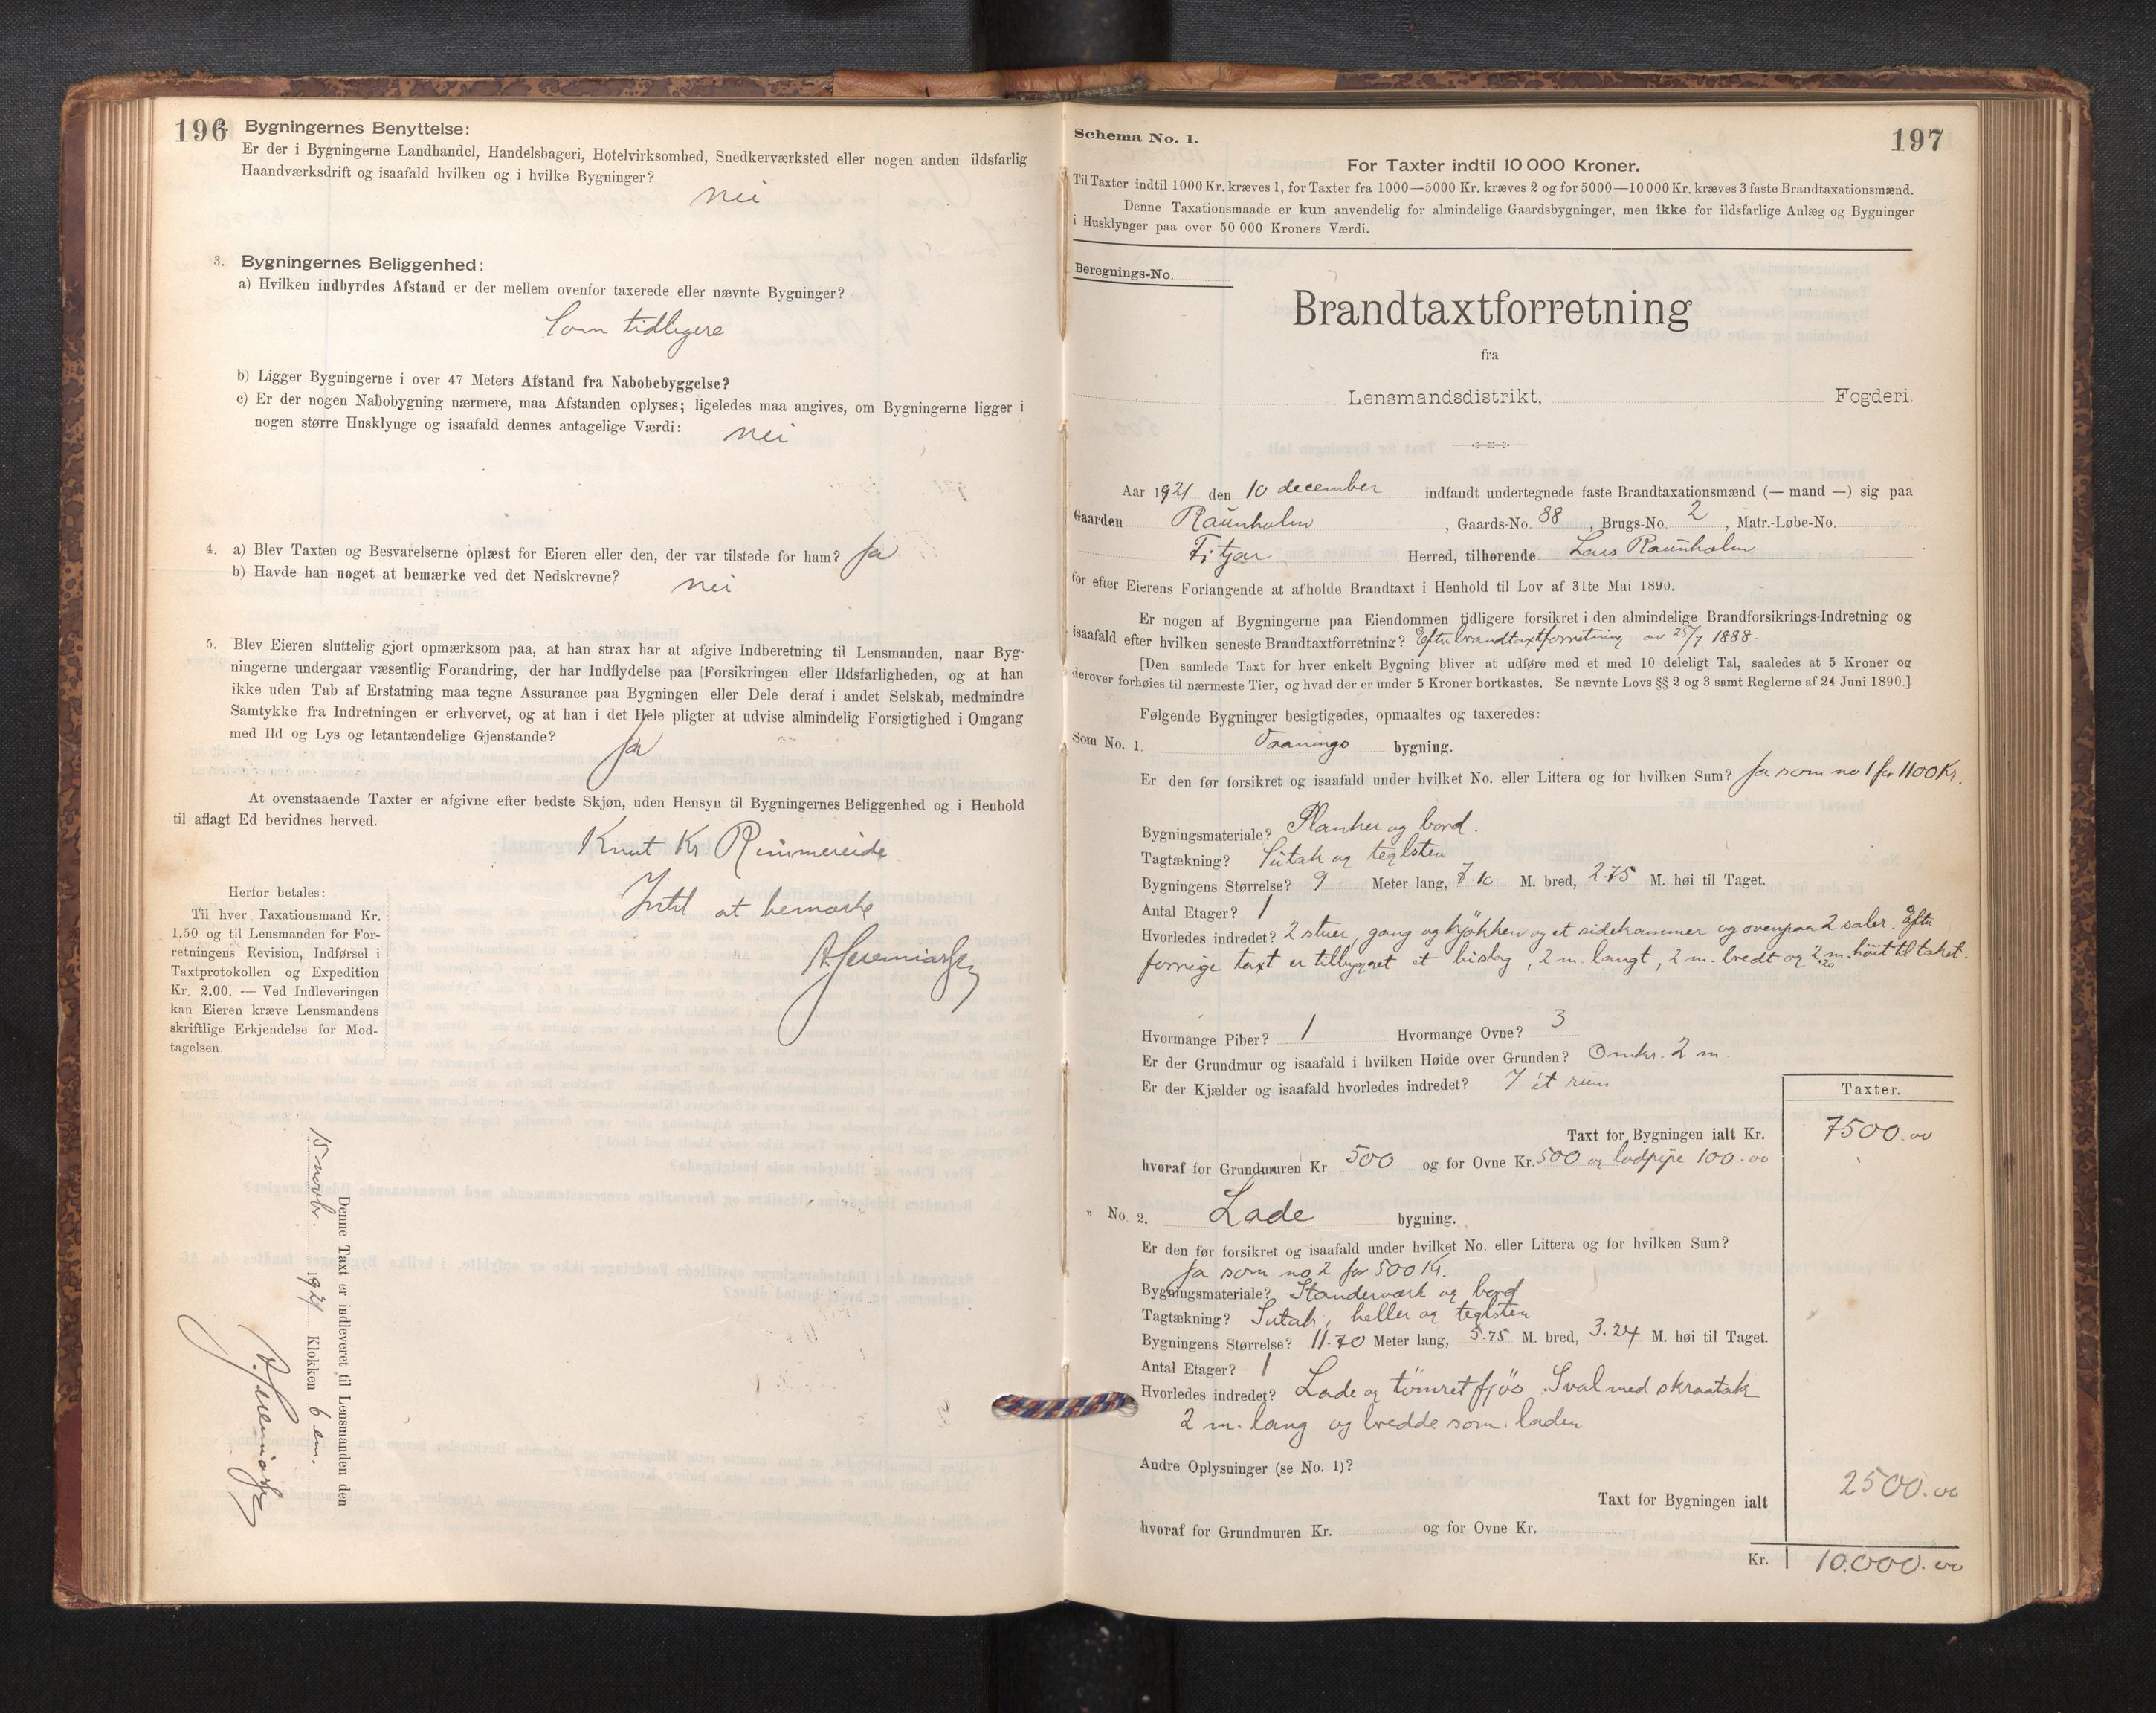 196
Bygningernes Benyttelse:
Er der i Bygningerne Landhandel, Handelsbageri, Hotelvirksomhed, Snedkerværksted eller nogen anden ildsfarlig
Haandværksdrift og isaafald hvilken og i hvilke Bygninger?
nei
3. Bygningernes Beliggenhed:
a) Hvilken indbyrdes Afstand er der mellem ovenfor taxerede eller nævnte Bygninger?
Som tidligere
b) Ligger Bygningerne i over 47 Meters Afstand fra Nabobebyggelse?
c) Er der nogen Nabobygning nærmere, maa Afstanden oplyses; ligeledes maa angives, om Bygningerne ligger i
nogen større Husklynge og isaafald dennes antagelige Værdi: nei
4. a) Blev Taxten og Besvarelserne oplæst for Eieren eller den, der var tilstede for ham? Ja
b) Havde han noget at bemærke ved det Nedskrevne? nei
5. Blev Eieren sluttelig gjort opmærksom paa, at han strax har at afgive Indberetning til Lensmanden, naar Byg-
ningerne undergaar væsentlig Forandring, der har Indflydelse paa Forsikringen eller Ildsfarligheden, og at han
ikke uden Tab af Erstatning maa tegne Assurance paa Bygningen eller Dele deraf i andet Selskab, medmindre
Samtykke fra Indretningen er erhvervet, og at han i det Hele pligter at udvise almindelig Forsigtighed i Omgang
med Ild og Lys og letantændelige Gjenstande? Ja
At ovenstaaende Taxter er afgivne efter bedste Skjøn, uden Hensyn til Bygningernes Beliggenhed og i Henhold
til aflagt Ed bevidnes herved.
Knut Kr. Rimmereide
Intet at bemærke
Herfor betales:
Til hver Taxationsmand Kr.
1,50 og til Lensmanden for For-
retningens Revision, Indførsel i
Taxtprotokollen og Expedition
Kr. 2.00. — Ved Indleveringen
kan Eieren kræve Lensmandens
skriftlige Erkjendelse for Mod-
tagelsen.
Denne Taxt er indleveret til Lensmanden den
15 novbr. 1921 Klokken 6 em.
197
Schema No. 1.
For Taxter indtil 10 000 Kroner.
Til Taxter indtil 1000 Kr. kræves 1, for Taxter fra 1000—5000 Kr. kræves 2 og for 5000—10 000 Kr. kræves 3 faste Brandtaxationsmænd.
Denne Taxationsmaade er kun anvendelig for almindelige Gaardsbygninger, men ikke for ildsfarlige Anlæg og Bygninger
i Husklynger paa over 50 000 Kroners Værdi.
Beregnings-No.
Brandtaxtforretning
fra
Lensmandsdistrikt, Fogderi.
Aar 1921 den 10 december indfandt undertegnede faste Brandtaxationsmænd (— mand —) sig paa
Gaarden Raunholm, Gaards-No. 88, Brugs-No. 2, Matr.-Løbe-No.
Fitjar Herred, tilhørende Lars Raunholm
for efter Eierens Forlangende at afholde Brandtaxt i Henhold til Lov af 31te Mai 1890.
Er nogen af Bygningerne paa Eiendommen tidligere forsikret i den almindelige Brandforsikrings-Indretning og
isaafald efter hvilken seneste Brandtaxtforretning? Efter brandtaxtforretning av 25/7 1888.
[Den samlede Taxt for hver enkelt Bygning bliver at udføre med et med 10 deleligt Tal, saaledes at 5 Kroner og
derover forhøies til nærmeste Tier, og hvad der er under 5 Kroner bortkastes. Se nævnte Lovs §§ 2 og 3 samt Reglerne af 24 Juni 1890.]
Følgende Bygninger besigtigedes, opmaaltes og taxeredes:
Som No. 1. Vaanings bygning.
Er den før forsikret og isaafald under hvilket No. eller Littera og for hvilken Sum? Ja som no 1 for 1100 Kr.
Bygningsmateriale? Planker og bord.
Tagtækning? Sutak og teglsten
Bygningens Størrelse? 9 Meter lang, 7.10 M. bred, 2.75 M. høi til Taget.
Antal Etager? 1
Hvorledes indredet? 2 stuer, gang og kjøkken og et sidekammer og ovenpaa 2 saler. Efter
forrige taxt er tilbygget et bislag, 2 m. langt, 2 m. bredt og 2.20 m. høit til taket.
Hvormange Piber? 1 Hvormange Ovne? 3
Er der Grundmur og isaafald i hvilken Høide over Grunden? Omkr. 2 m.
Er der Kjælder og isaafald hvorledes indredet? I et rum
Taxter.
Taxt for Bygningen ialt Kr. 7500.00
hvoraf for Grundmuren Kr. 500 og for Ovne Kr. 500 og lodpipe 100.00
" No. 2. Lade bygning.
Er den før forsikret og isaafald under hvilket No. eller Littera og for hvilken Sum?
Ja som no 2 for 500 Kr.
Bygningsmateriale? Standerværk og bord
Tagtækning? Sutak, heller og teglsten
Bygningens Størrelse? 11.70 Meter lang, 5.75 M. bred, 3.24 M. høi til Taget.
Antal Etager? 1
Hvorledes indredet? Lade og tømret fjøs. Sval med skraatak
2 m. lang og bredde som laden
Andre Oplysninger (se No. 1)?
Taxt for Bygningen ialt 2500.00
hvoraf for Grundmuren Kr. og for Ovne Kr.
Kr. 10.000.00